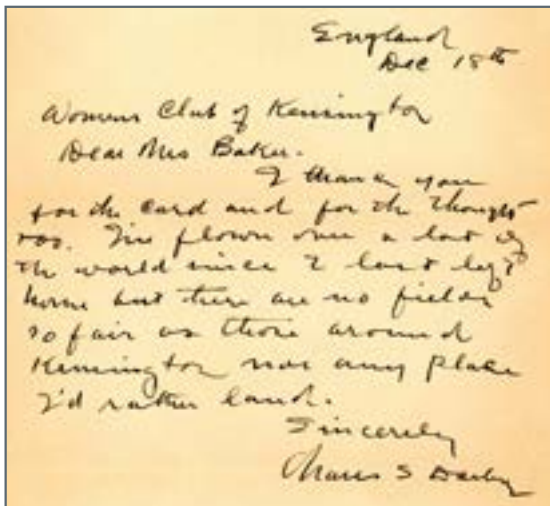 England
Dec 18th
Womens Club of Kensington
Dear Mrs Baker.
I thank you
for the card and for the thought
too. I've flown over a lot of
the world since I last left
home but there are no fields
so fair as those around
Kensington nor any place
I'd rather land.
Sincerely
S Darby